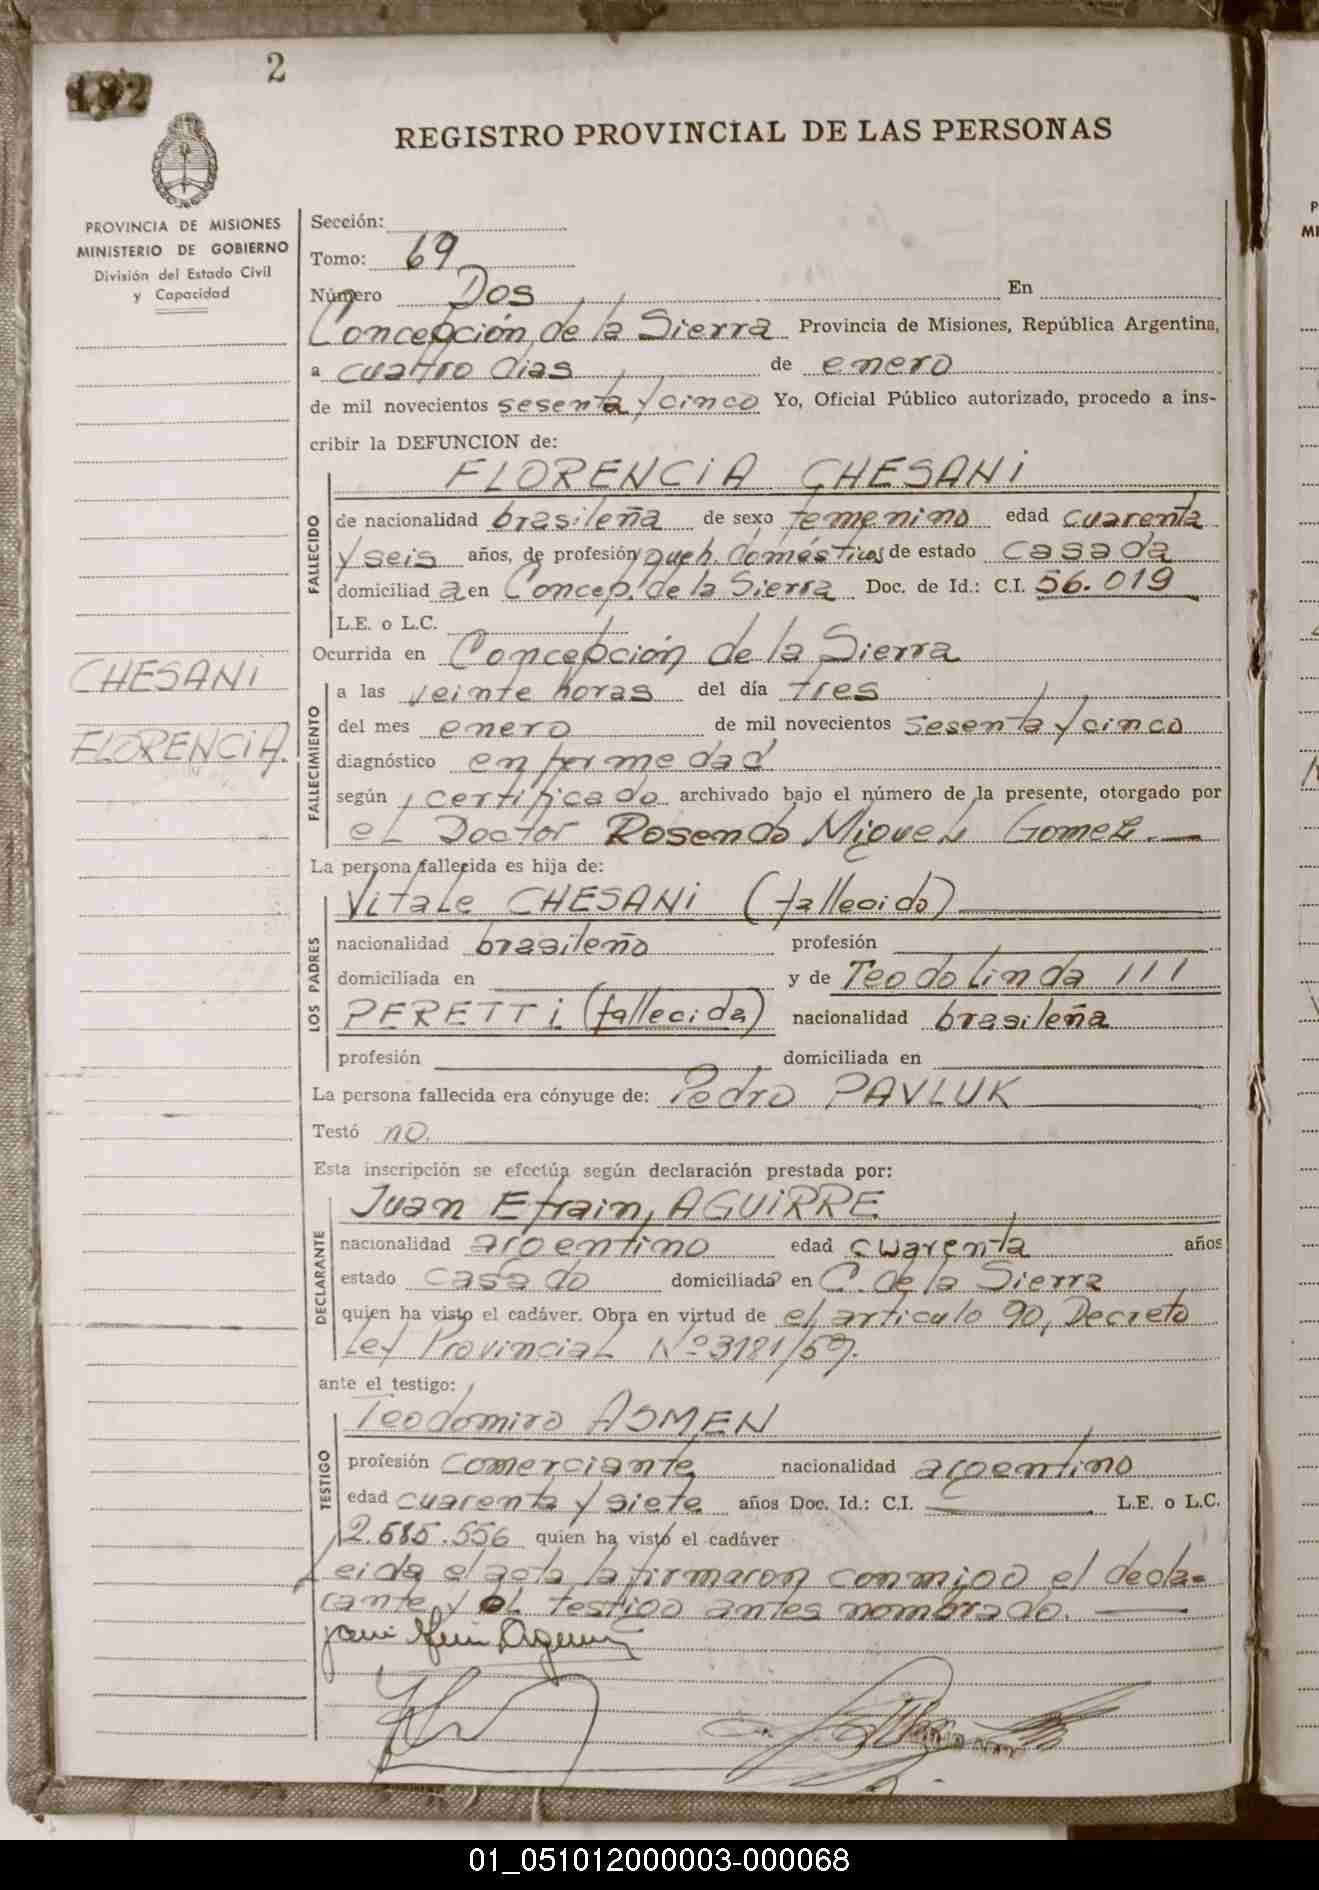 2
192
REGISTRO PROVINCIAL DE LAS PERSONAS
PROVINCIA DE MISIONES
MINISTERIO DE GOBIERNO
División del Estado Civil
y Capacidad
CHESANI
FLORENCIA.
Sección:
Tomo: 69
Número Dos En
Concepción de la Sierra Provincia de Misiones, República Argentina,
a cuatro dias de enero
de mil novecientos sesenta y cinco Yo, Oficial Público autorizado, procedo a ins-
cribir la DEFUNCION de:
FLORENCIA CHESANI
FALLECIDO
de nacionalidad brasileña de sexo femenino edad cuarenta
y seis años, de profesión queh. domésticos de estado casada
domiciliad a en Concep. de la Sierra Doc. de Id.: C.I. 56.019
L.E. o L.C.
Ocurrida en Concepción de la Sierra
FALLECIMIENTO
a las veinte horas del día tres
del mes enero de mil novecientos sesenta y cinco
diagnóstico enfermedad
según certificado archivado bajo el número de la presente, otorgado por
el Doctor Rosendo Miguel Gomez.
La persona fallecida es hija de:
LOS PADRES
Vitale CHESANI (fallecido)
nacionalidad brasileño profesión
domiciliada en y de Teodolinda
PERETTI (fallecida) nacionalidad brasileña
profesión domiciliada en
La persona fallecida era cónyuge de: Pedro PAVLUK
Testó no.
Esta inscripción se efectúa según declaración prestada por:
DECLARANTE
Juan Efrain, AGUIRRE
nacionalidad argentino edad cuarenta años
estado casado domiciliada en C. de la Sierra
quien ha visto el cadáver. Obra en virtud de el articulo 90, Decreto
Ley Provincial Nº 3181/59.
ante el testigo:
TESTIGO
Teodomiro ASMEN
profesión comerciante nacionalidad argentino
edad cuarenta y siete años Doc. Id.: C.I. L.E. o L.C.
2.685.556 quien ha visto el cadáver
Leida el acta la firmaron conmigo el decla-
rante y el testigo antes nombrado.
01_051012000003-000068